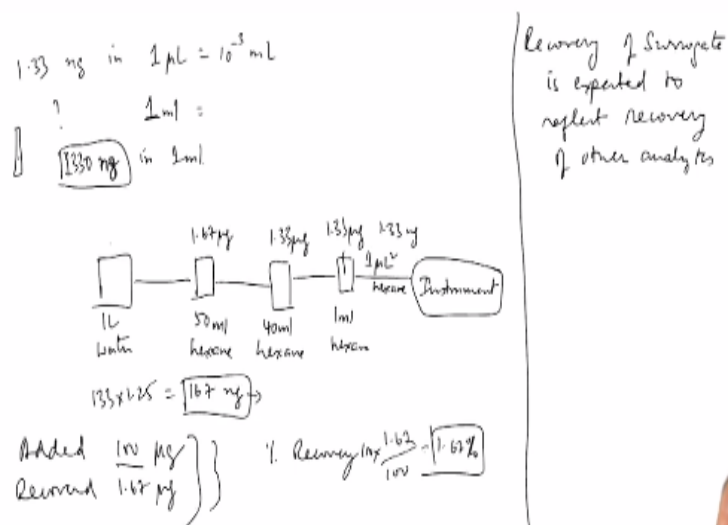 1.33 ng in 1 µL = 10⁻³ mL
? 1ml =
1330 ng in 1ml
1.67µg 1.33µg 1.33µg 1.33ng
1µL
hexane
Instrument
1L
water
50ml
hexane
40ml
hexane
1ml
hexan
133x1.25 = 167 ng →
Added 100 µg
Recovered 1.67 µg
% Recovery 100 x 1.67/100 = 1.67%
Recovery of Surrogate
is expected to
reflect recovery
of other analytes